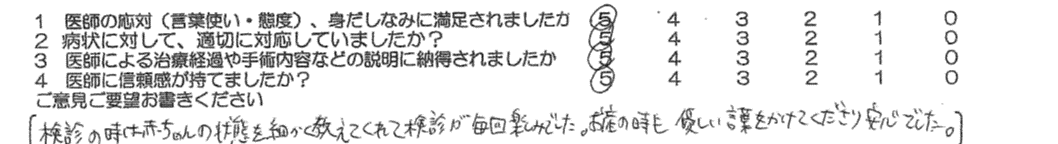 1 医師の応対（言葉使い・態度）、身だしなみに満足されましたか 5 4 3 2 1 0
2 病状に対して、適切に対応していましたか？ 5 4 3 2 1 0
3 医師による治療経過や手術内容などの説明に納得されましたか 5 4 3 2 1 0
4 医師に信頼感が持てましたか？ 5 4 3 2 1 0
ご意見ご要望お書きください
[検診の時は赤ちゃんの状態を細かく教えてくれて検診が毎回楽しみでした。お産の時も優しい言葉をかけてくださり安心でした。]